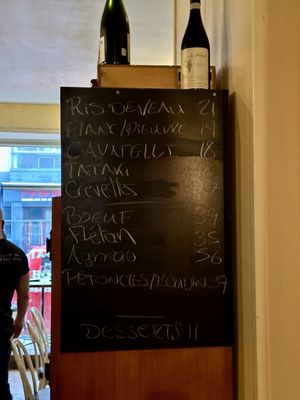 RIS DE VEAU 21
FLANC/PIEUVRE 19
CAVATELLI 18
TATAKI
Crevettes
BOEUF
Flétan 35
Agneau 36
PÉTONCLES/BOUDIN 39
DESSERTS 11